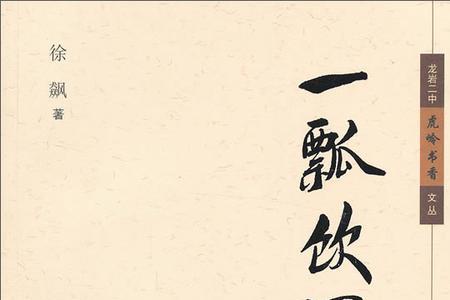 龙岩二中
虎岭书香
文丛
一瓢饮
徐飙
著